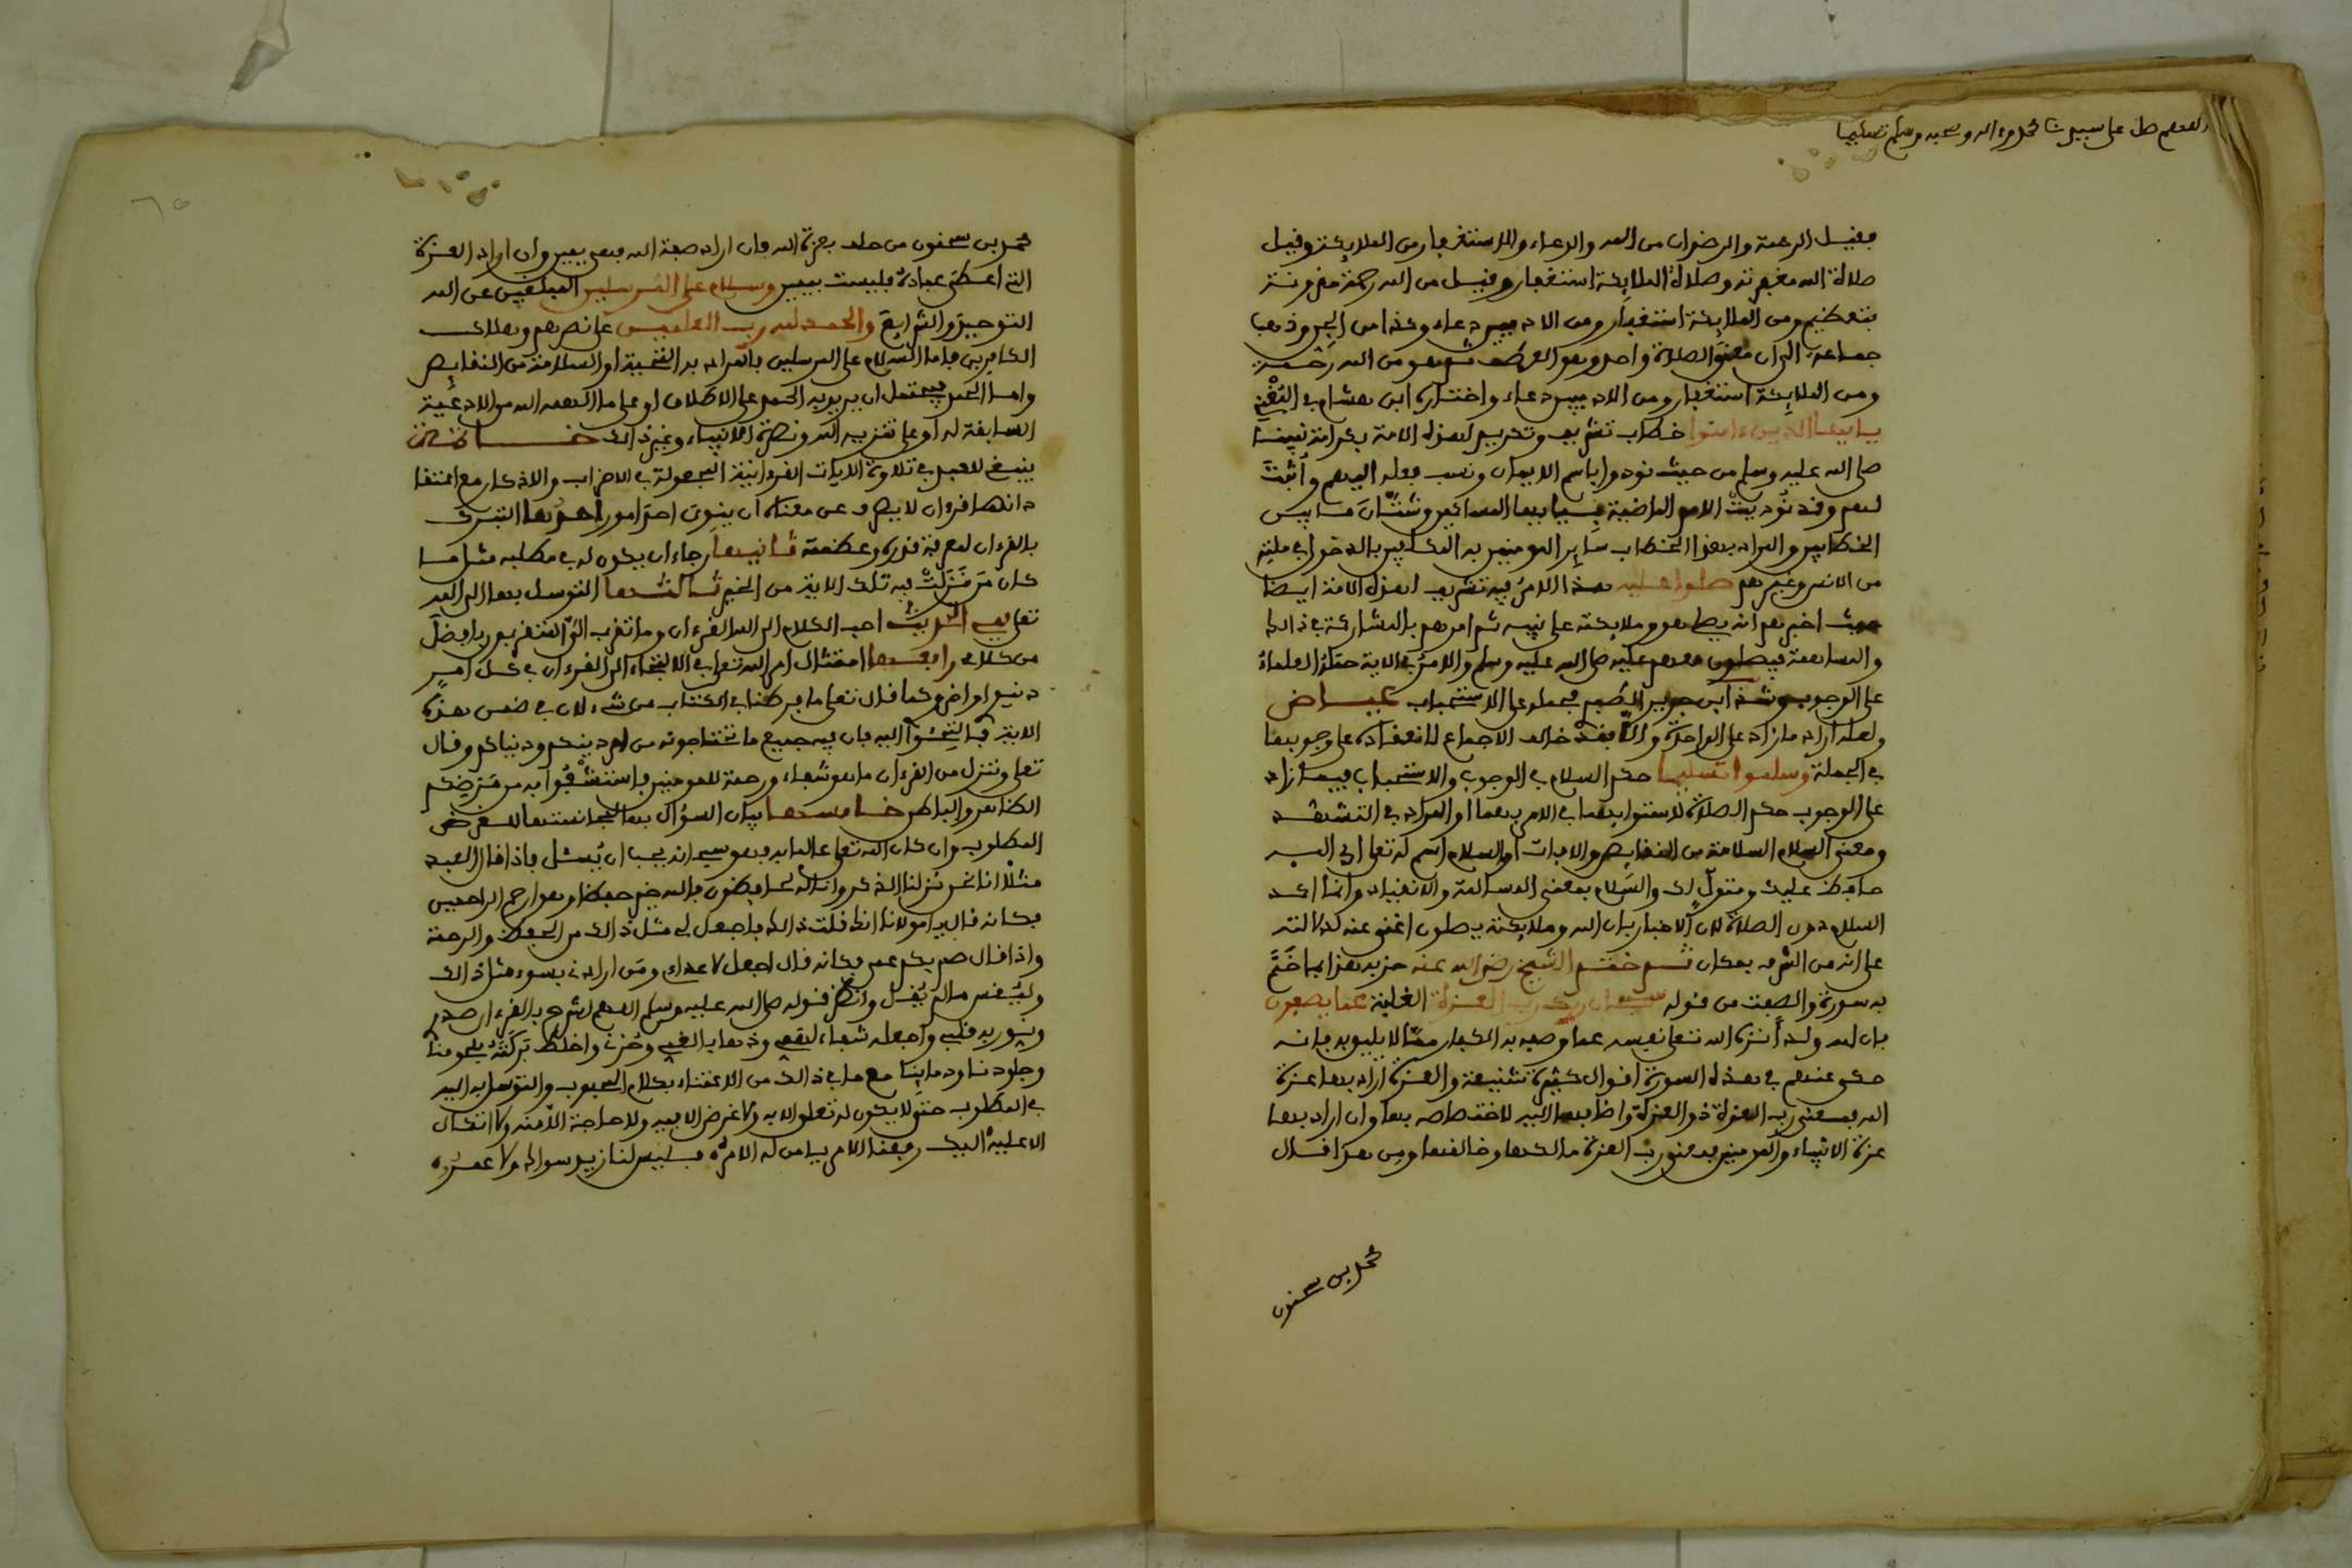 اللهم صل على سيدنا محمد وءاله وصحبه وسلم تسليما
فقيل الرحمة والرضوان من الله والدعاء والاستغفار من الملايكة وقيل
صلاة الله مغفرته وصلاة الملايكة استغفار وقيل من الله رحمة مقرونة
بتعظيم ومن الملايكة استغفار ومن الادميين دعاء وكذا من الجن وذهب
جماعة الى ان معنى الصلاة واحد وهو العطف ثم هو من الله رحمة
ومن الملايكة استغفار ومن الادميين دعاء واختاره ابن هشام في المُغْنِي
يا ايها الذين ءامنوا خطاب تشريف وتكريم لهذه الامة بكرامة نبيها
صلى الله عليه وسلم من حيث نودوا باسم الايمان ونسب فعله اليهم وأثبت
لهم وقد نُوديتْ الامم الماضية بيا ايها المساكين وشتّانَ ما بين
الخطابين والمراد بهذا الخطاب سايِر المومنين به المكلفين بالدخول في ملته
من الانس وغيرهم صلوا عليه هذا الامرُ فيه تشريف لهذه الامة ايضا
حيث اخبرهم انه يصلي هو وملايكته على نبيه ثم امرهم بالمشاركة في ذالك
والمساهمة فيصلون معهم عليه صلى الله عليه وسلم والامرُ في الاية حمله العلماءُ
على الوجوب وشذ ابن جرير الطبري فحمله على الاستحباب عياض
ولعله اراد ما زاد على الواحدة والّا فقد خالف الاجماع لانعقاده على وجوبها
في الجملة وسلموا تسليما حكم السلام في الوجوب والاستحباب فيما زاد
على الوجوب حكم الصلاة لاستوايهما في الامر بهما او المراد في التشهد
ومعنى السلام السلامة من النقايص والافات او السلام اسم له تعالى اي الله
حافظ عليك ومتولٍّ لك والسَّلام بمعنى المسالمة والانقياد وانما اكد
السلام دون الصلاة لان الاخبار بان الله وملايكته يصلون اغنى عنه لدلالته
على انه من الشرف بمكان ثم ختم الشيخ رضي الله عنه حزبه هذا بما خَتَمَ
به سورة والصفت من قوله سبحان ربك رب العزة الغلبة عما يصفون
بان له ولد أنزه الله تعالى نفسه عما وصفه به الكفار ممّا لا يليق به فانه
حكى عنهم في هذه السورة اقوال كثيرة شنيعة والعزة اراد بها عزة
الله فمعنى رب العزة ذو العزة واضافها اليه لاختصاصه بها وان اراد بها
عزة الانبياء والمومنين فمعنى رب العزة مالكها وخالقها ومن هذا قال
محمد بن سحنون
محمد بن سحنون من حلف بعزة الله فان اراد صفة الله فهي يمين وان اراد العزة
التي اعطى عبادهُ فليست بيمين وسلام على المرسلين المبلغين عن الله
التوحيد والشرايع والحمد لله رب العلمين على نصرهم وهلاك
الكافرين فاما السلام على المرسلين فالمراد به التحية او السلامة من النقايِص
واما الحمد فيحتمل ان يريد به الحمد على الاطلاق او على ما الهمه الله من الادعية
السابقة له او على تنزيه الله ونصرة الانبياء وغير ذالك خاتمة
ينبغي للعبد في تلاوة الايات القرءانية المجعولة في الاحزاب والاذكار مع اعتقا
دانها قرءان لا يصرف عن معناه ان ينوي احد امور احدها التبرك
بالقرءان لمعرفة قدره وعظمته ثانيها رجاء ان يكون له في مطلبه مثل ما
كان مَن نَزَلَتْ فيه تلك الاية من الخير ثالثها التوسل بها الى الله
تعلى ففي الحديث احب الكلام الى الله القرءان وما تقرب اليّ المتقربون بافضل
من كلامي رابعها امتثال امر الله تعلى في الالتجاء الى القرءان في كل امر
دنيوي او اخروي كما قال تعلى ما فرطنا في الكتاب من شيء لان في ضمن هذه
الاية فالتجئوا اليه فان فيه جميع ما تحتاجونه من امر دينكم ودنياكم وقال
تعلى وننزل من القرءان ما هو شفاء ورحمة للمومنين فاستشفُوا به من مَرَضِكم
الظاهر والباطن خامسها بيان السؤال بها لمجانستها للغرض
المطلوب وان كان الله تعلى عالما به فهو سبحانه يحب ان يُسئل فاذا قال العبد
مثلا انا نحن نزلنا الذكر وانا له لحافظون فالله خير حفظا وهو ارحم الراحمين
فكانه قال يا مولانا انك قلت ذالك فاجعل لي مثل ذالك من الحفظ والرحمة
واذا قال صم بكم عمي فكانه قال اجعل لاعداءي ومَن ارادني بسوء مثل ذالك
وليُقس ما لم يُقل وانظر قوله صلى الله عليه وسلم اللهم اشرح بالقرءان صدر
ونور به قلبي واجعله شفاء لهمي وذهابا لغمي وحُزني واخلط بَرَكَتَهُ بلحومنا
وجلودنا ودماينا مع ما في ذالك من الاعتناء بكلام المحبوب والتوسل به اليه
في المطلوب حتى لا يكون له تعلق الا به ولا غرض الا فيه ولا حاجة الا منه ولا اتكال
الا عليه اليك رفعنا الامر يا من له الامرُ فليس لنا زيد سواك ولا عَمرُو